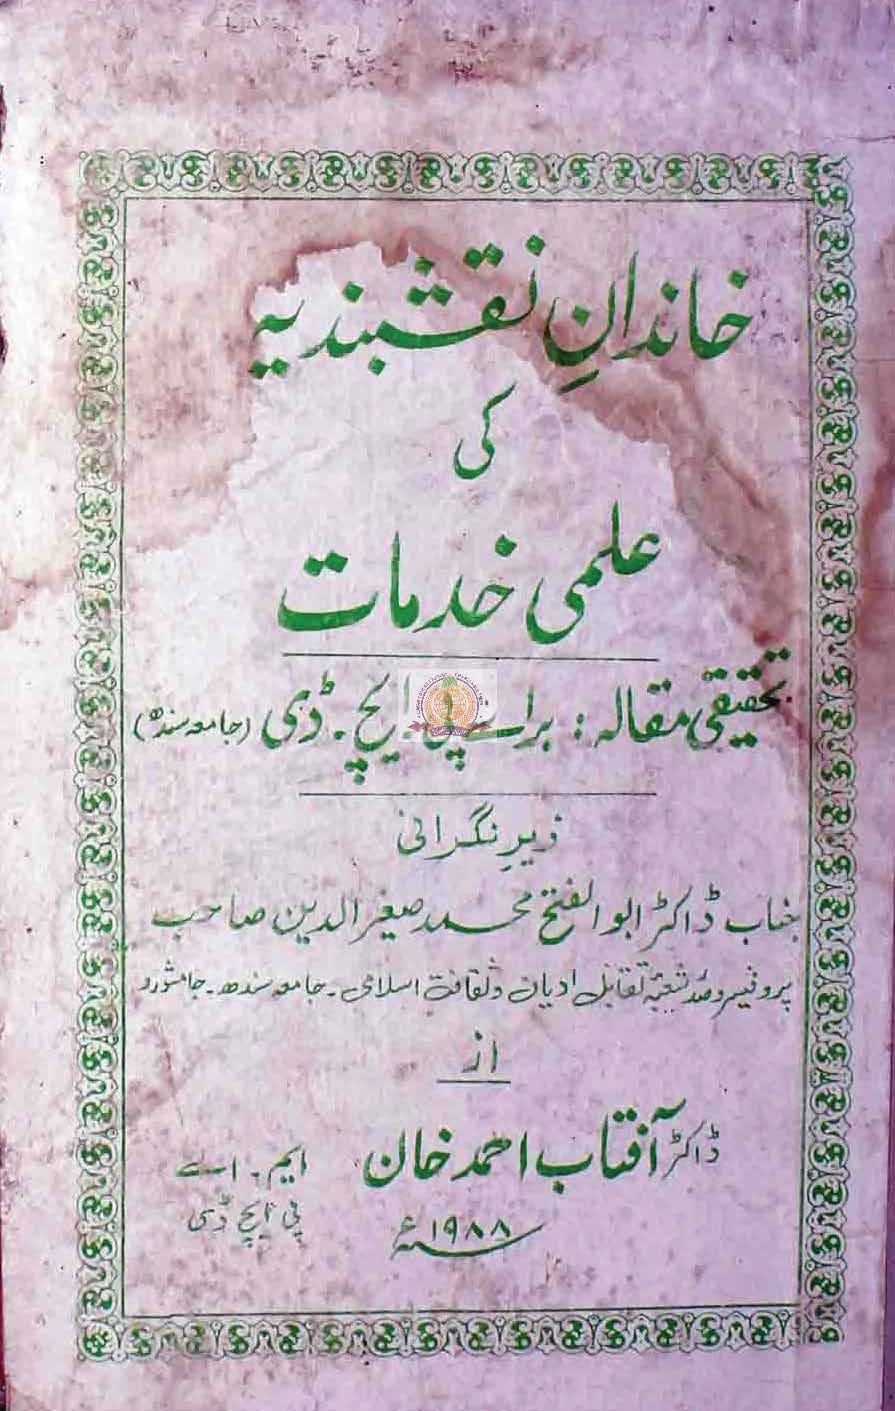 خاندانِ نقشبندیہ
کی
علمی خدمات
تحقیقی مقالہ: برائے پی ایچ۔ڈی (جامعہ سندھ)
زیرِ نگرانی
جناب ڈاکٹر ابوالفتح محمد صغیر الدین صاحب
پروفیسر وصدر شعبۂ تقابل ادیان و ثقافت اسلامی۔ جامعہ سندھ۔ جامشورو
از
ڈاکٹر آفتاب احمد خان ایم۔اے
پی ایچ ڈی
۱۹۸۸ء